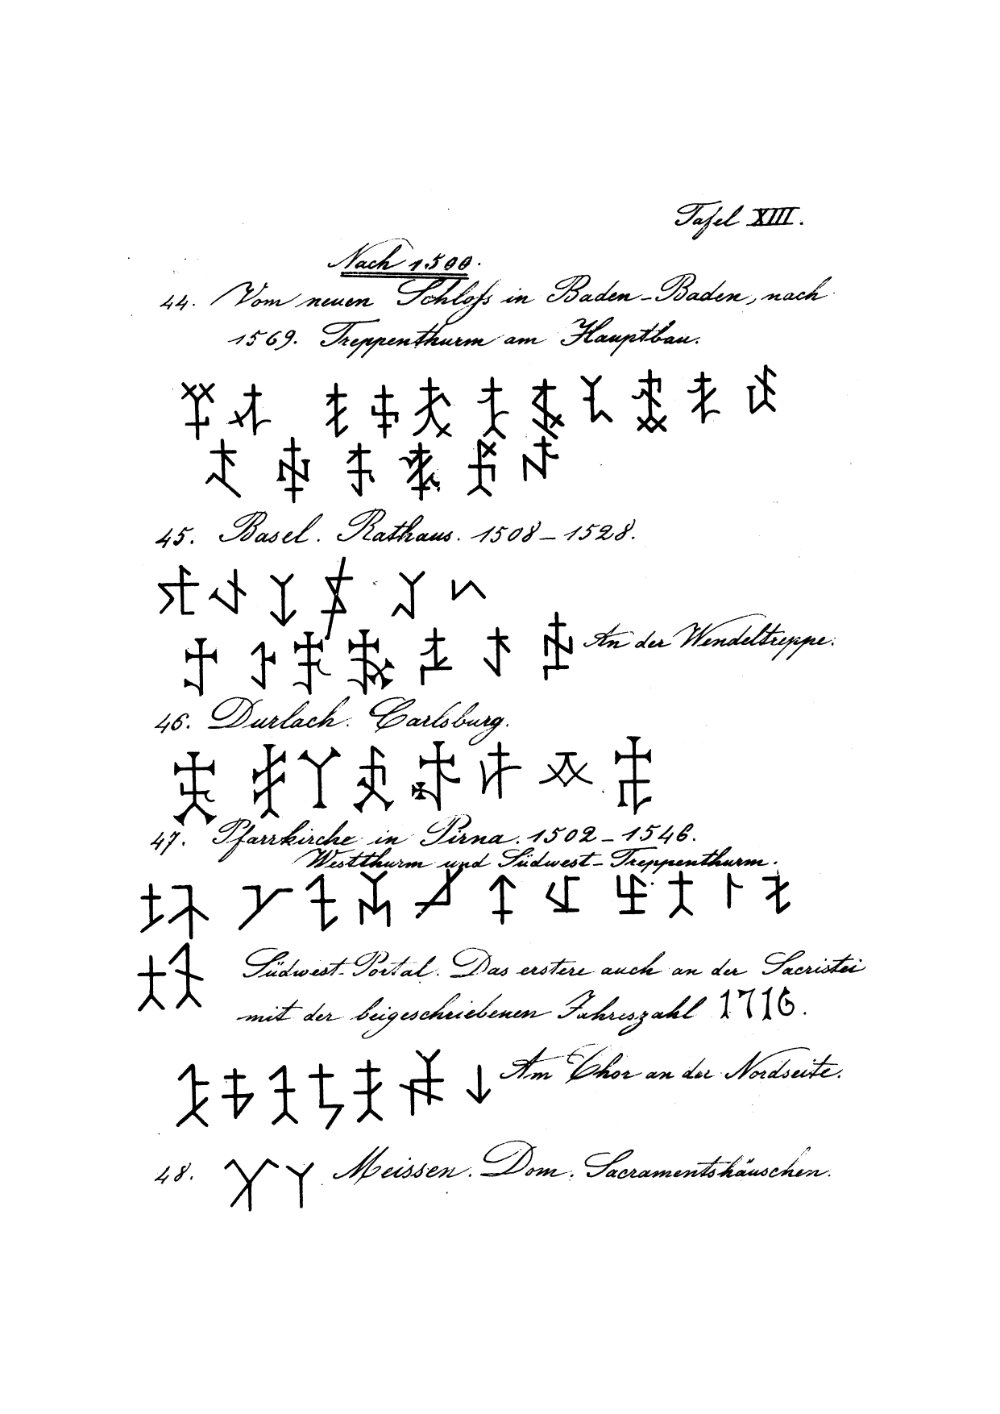 Tafel XIII.
Nach 1500.
44. Vom neuen Schloss in Baden-Baden, nach
1569. Treppenthurm am Hauptbau.
45. Basel. Rathaus. 1508-1528.
An der Wendeltreppe.
46. Durlach. Carlsburg.
47. Pfarrkirche in Pirna. 1502-1546.
Westthurm und Südwest-Treppenthurm.
Südwest-Portal. Das erstere auch an der Sacristei
mit der beigeschriebenen Jahreszahl 1716.
Am Chor an der Nordseite.
48. Meissen. Dom. Sacramentshäuschen.